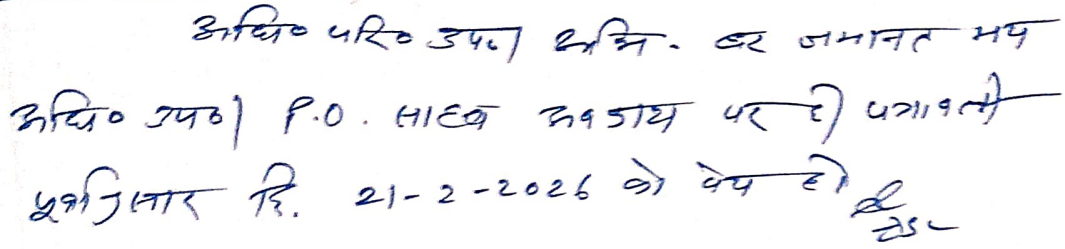 अधि० परि० उप०। अभि. बर जमानत मय
अधि० उप०। P.O. साहब अवकाश पर है। पत्रावली
पूर्वानुसार दि. 21-2-2026 को पेश हो।